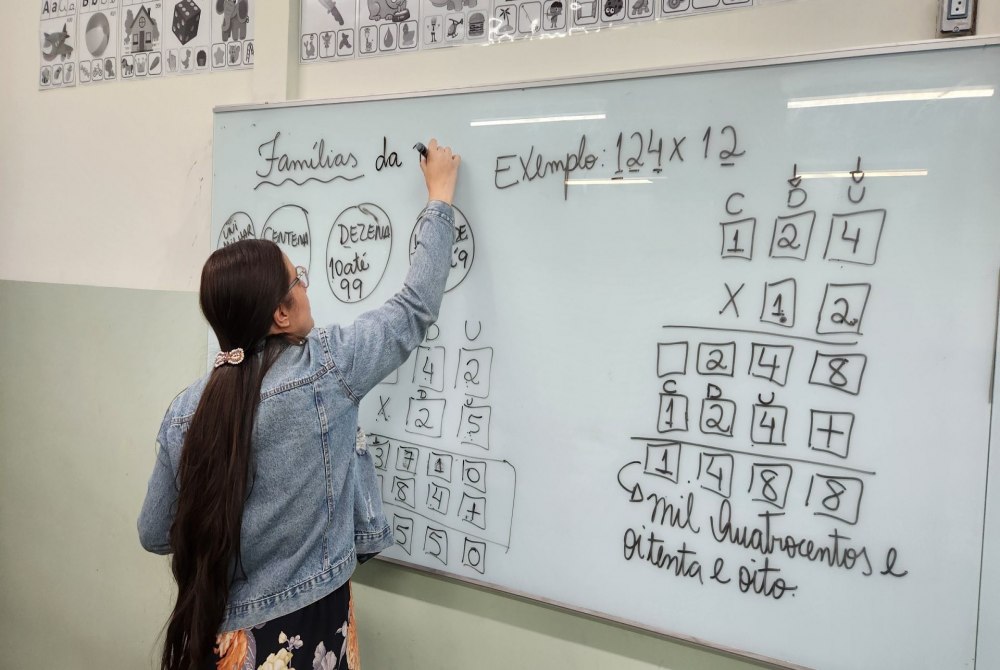 Aa Bb
Famílias da
Exemplo: 124 x 12
UNI
MILHAR
CENTENA
DEZENA
10 até
99
DE
9
C D U
1 2 4
X 1 2
2 4 8
C D U
1 2 4 +
1 4 8 8
mil quatrocentos e
oitenta e oito.
D U
4 2
D U
X 2 5
3 7 1 0
8 4 +
5 5 0